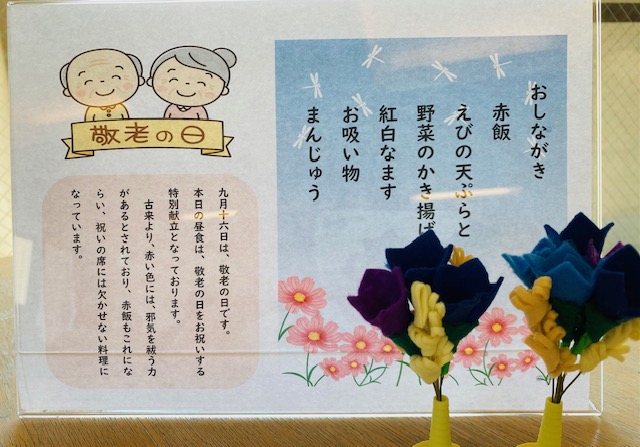 敬老の日
おしながき
赤飯
えびの天ぷらと
野菜のかき揚げ
紅白なます
お吸い物
まんじゅう
九月十六日は、敬老の日です。
本日の昼食は、敬老の日をお祝いする
特別献立となっております。
古来より、赤い色には、邪気を祓う力
があるとされており、赤飯もこれにな
らい、祝いの席には欠かせない料理に
なっています。